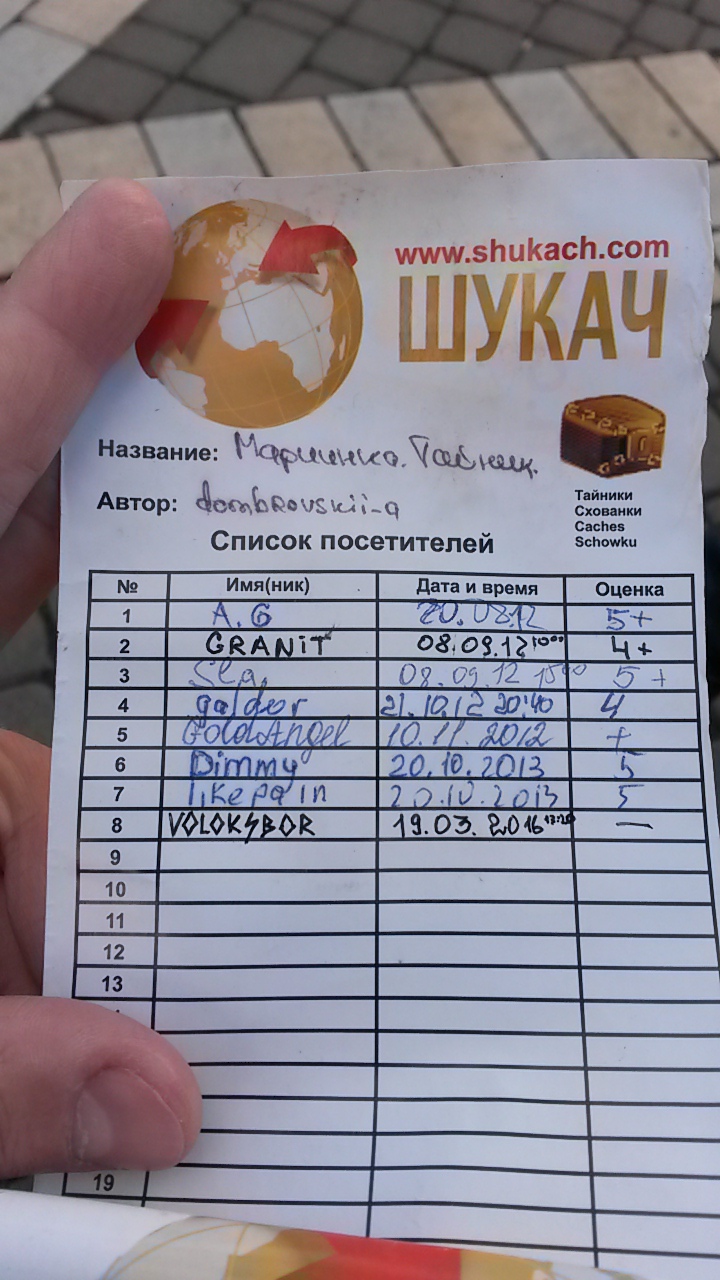 www.shukach.com
ШУКАЧ
Название: Мариинка. Тайник.
Автор: dombrovskii-a
Тайники
Схованки
Caches
Schowku
Список посетителей
№ Имя(ник) Дата и время Оценка
1 A.G 20.08.12 5+
2 GRANIT 08.09.12 10⁰⁰ 4+
3 Sla, 08.09.12 15⁰⁰ 5+
4 galdor 21.10.12 20:40 4
5 GoldAngel 10.11.2012 +
6 Dimmy 20.10.2013 5
7 likepain 20.10.2013 5
8 VOLOKSBOR 19.03.2016 —
9
10
11
12
13
19